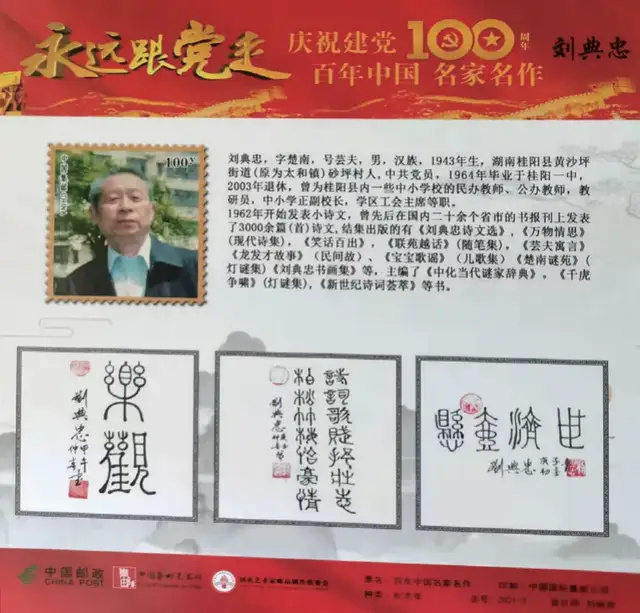 永远跟党走
庆祝建党100周年
百年中国 名家名作
刘典忠
100
刘典忠，字楚南，号芸夫，男，汉族，1943年生，湖南桂阳县黄沙坪
街道(原为太和镇)砂坪村人，中共党员，1964年毕业于桂阳一中，
2003年退休，曾为桂阳县内一些中小学校的民办教师、公办教师，教
研员，中小学正副校长，学区工会主席等职。
1962年开始发表小诗文，曾先后在国内二十余个省市的书报刊上发表
了3000余篇(首)诗文，结集出版的有《刘典忠诗文选》，《万物情思》
(现代诗集)，《笑话百出》，《联苑越话》(随笔集)，《芸夫寓言》
《龙发才故事》（民间故）、《宝宝歌谣》（儿歌集）、《楚南谜苑》(
灯谜集)《刘典忠书画集》等。主编了《中化当代谜家辞典》。《千虎
争啸》(灯谜集)，《新世纪诗词荟萃》等书。
樂觀
劉典忠
詩詞歌賦抒壯志
松竹梅
豪情
劉典忠
懸壺濟世
劉典忠
中国邮政
CHINA POST